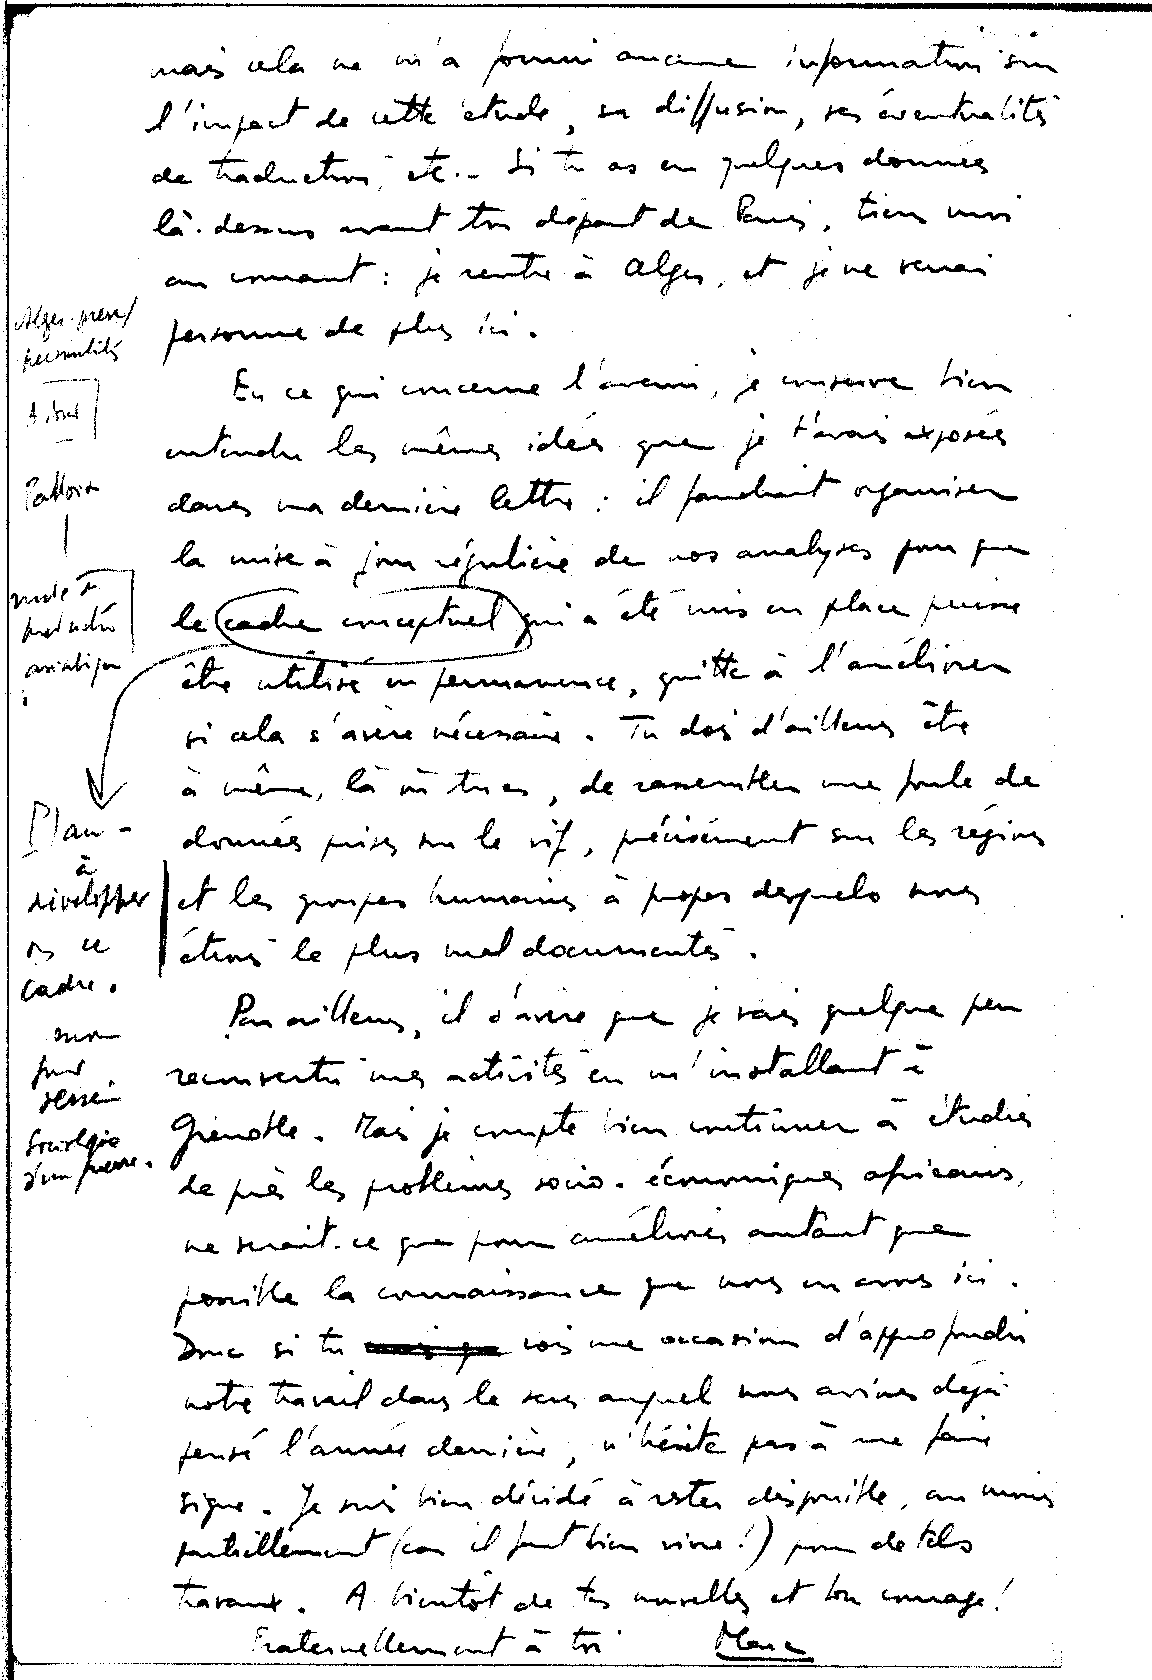 mais cela ne m'a fourni aucune information sur
l'impact de cette étude, sa diffusion, ses éventualités
de traduction, etc.. Si tu as eu quelques données
là-dessus avant ton départ de Paris, tiens moi
au courant : je rentre à Alger, et je ne verrai
personne de plus ici.
En ce qui concerne l'avenir, je conserve bien
entendu les mêmes idées que je t'avais exposées
dans ma dernière lettre : il faudrait organiser
la mise à jour régulière de nos analyses pour que
le cadre conceptuel qui a été mis en place puisse
être utilisé en permanence, quitte à l'améliorer
si cela s'avère nécessaire. Tu dois d'ailleurs être
à même, là où tu es, de rassembler une foule de
données prises sur le vif, précisément sur les régions
et les groupes humains à propos desquels nous
étions le plus mal documentés.
Par ailleurs, il s'avère que je vais quelque peu
reconvertir mes activités en m'installant à
Grenoble. Mais je compte bien continuer à étudier
de près les problèmes socio-économiques africains,
ne serait-ce que pour améliorer autant que
possible la connaissance que nous en avons ici.
Donc si tu vois une occasion d'approfondir
notre travail dans le sens auquel nous avions déjà
pensé l'année dernière, n'hésite pas à me faire
signe. Je suis bien décidé à rester disponible, au moins
partiellement (car il faut bien vivre !) pour de tels
travaux. A bientôt de tes nouvelles et bon courage !
Fraternellement à toi
Alger
mode de
production
asiatique
Plan -
à
développer
ds ce
cadre.